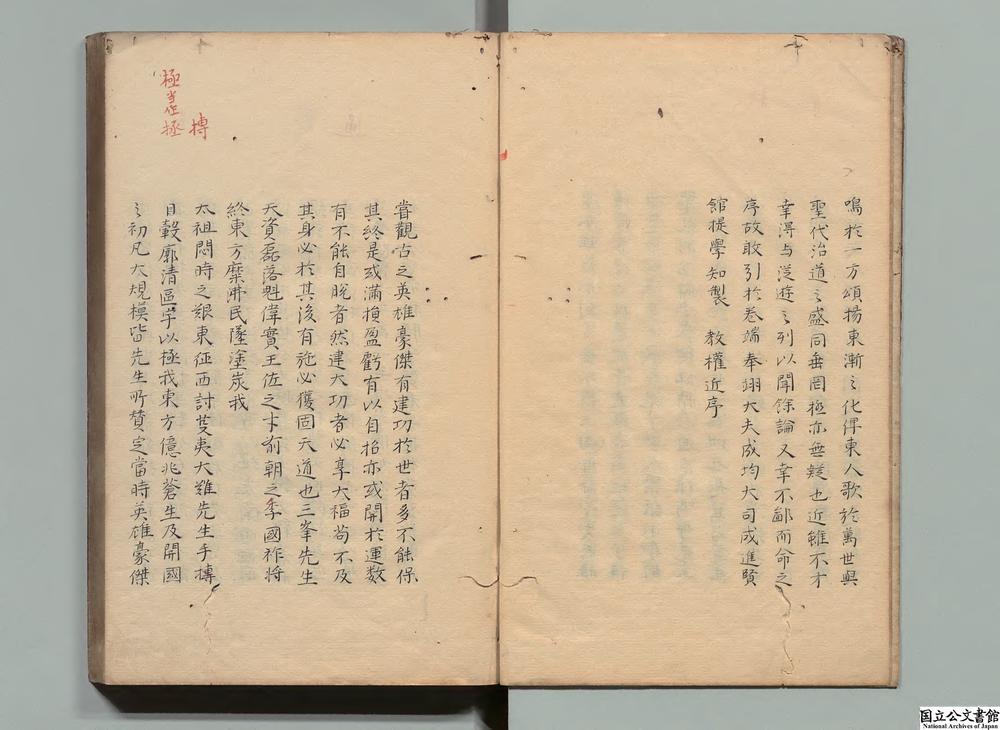 鳴於一方頌揚東漸之化俾東人歌於萬世與
聖代治道之盛同垂罔極亦無疑也近雖不才
幸得与從遊之列以聞餘論又幸不鄙而命之
序故敢引於卷端奉翊大夫成均大司成進賢
館提學知製 教權近序
嘗觀古之英雄豪傑有建功於世者多不能保
其終是或滿損盈虧有以自招亦或開於運数
有不能自脫者然建大功者必享大福苟不及
其身必於其後有施必獲固天道也三峯先生
天資磊落魁偉實王佐之才前朝之季國祚將
終東方糜沸民墜塗炭我
太祖悶時之艱東征西討芟夷大難先生手摶
日轂廓清區宇以極我東方億兆蒼生及開國
之初凡大規模皆先生所贊定當時英雄豪傑
摶
極当作拯
国立公文書館
National Archives of Japan